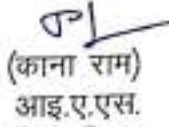 (काना राम)
आइ.ए.एस.